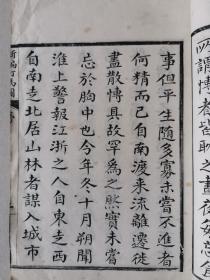 所謂博者皆耽之晝夜每忘
事但平生隨多寡未嘗不進者
何精而已自南渡來流離遷徙
盡散博具故罕為之然實未嘗
忘於胸中也今年冬十月朔聞
淮上警報江浙之人自東走西
自南走北居山林者謀入城市
新編打馬圖